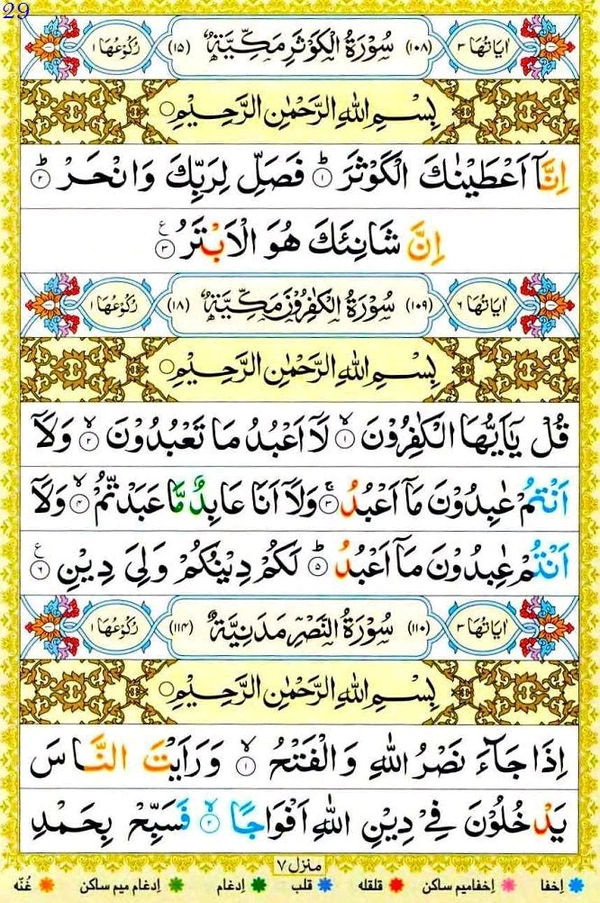 29
اٰيَاتُهَا ٣ (١٠٨) سُوْرَةُ الْكَوْثَرِ مَكِّيَّةٌ (١٥) رُكُوْعُهَا ١
بِسْمِ اللهِ الرَّحْمٰنِ الرَّحِيْمِ ○
اِنَّاۤ اَعْطَيْنٰكَ الْكَوْثَرَ ؕ﴿١﴾ فَصَلِّ لِرَبِّكَ وَانْحَرْ ؕ﴿٢﴾
اِنَّ شَانِئَكَ هُوَ الْاَبْتَرُ ﴿٣﴾ ع
اٰيَاتُهَا ٦ (١٠٩) سُوْرَةُ الْكٰفِرُوْنَ مَكِّيَّةٌ (١٨) رُكُوْعُهَا ١
بِسْمِ اللهِ الرَّحْمٰنِ الرَّحِيْمِ ○
قُلْ يٰۤاَيُّهَا الْكٰفِرُوْنَ ۙ﴿١﴾ لَاۤ اَعْبُدُ مَا تَعْبُدُوْنَ ۙ﴿٢﴾ وَلَاۤ
اَنْتُمْ عٰبِدُوْنَ مَاۤ اَعْبُدُ ۚ﴿٣﴾ وَلَاۤ اَنَا عَابِدٌ مَّا عَبَدْتُّمْ ۙ﴿٤﴾ وَلَاۤ
اَنْتُمْ عٰبِدُوْنَ مَاۤ اَعْبُدُ ؕ﴿٥﴾ لَكُمْ دِيْنُكُمْ وَلِيَ دِيْنِ ﴿٦﴾ ع
اٰيَاتُهَا ٣ (١١٠) سُوْرَةُ النَّصْرِ مَدَنِيَّةٌ (١١٤) رُكُوْعُهَا ١
بِسْمِ اللهِ الرَّحْمٰنِ الرَّحِيْمِ ○
اِذَا جَآءَ نَصْرُ اللهِ وَالْفَتْحُ ۙ﴿١﴾ وَرَاَيْتَ النَّاسَ
يَدْخُلُوْنَ فِيْ دِيْنِ اللهِ اَفْوَاجًا ۙ﴿٢﴾ فَسَبِّحْ بِحَمْدِ
منزل ٧
اِخفا اِخفامیم ساکن قلقله قلب اِدغام اِدغام میم ساکن غُنّه